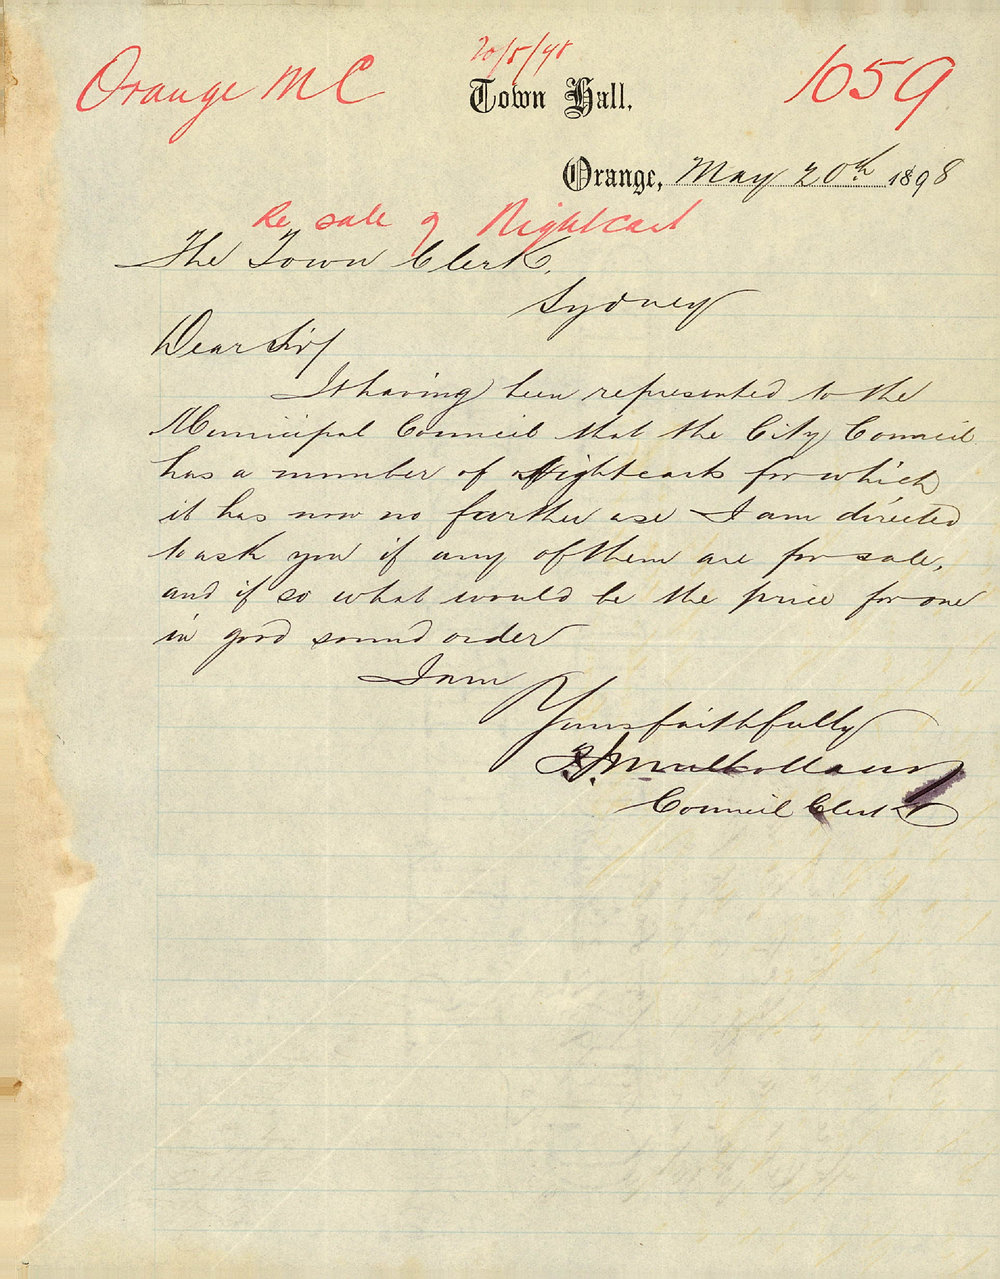 20/5/98
Orange M C
1059
Town Hall,
Orange, May 20th 1898
Re sale of Nightcart
The Town Clerk,
Sydney
Dear Sir/
It having been represented to the
Municipal Council that the City Council
has a number of Nightcarts for which
it has now no further use I am directed
to ask you if any of them are for sale,
and if so what would be the price for one
in good sound order
I am
Yours faithfully
Mulholland
Council Clerk